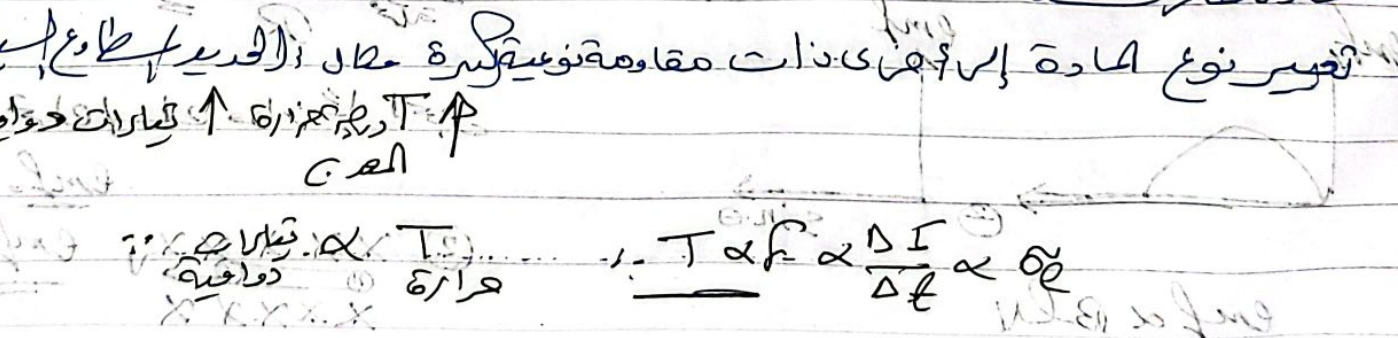 تغيير نوع المادة إلى أخرى ذات مقاومة نوعية كبيرة مثال: الحديد المطاوع
↑ T درجة حرارة المعدن ↑ تيارات
∵ تيارات دوامية ∝ T حرارة ∴ T ∝ f ∝ ΔI/Δt ∝ σe